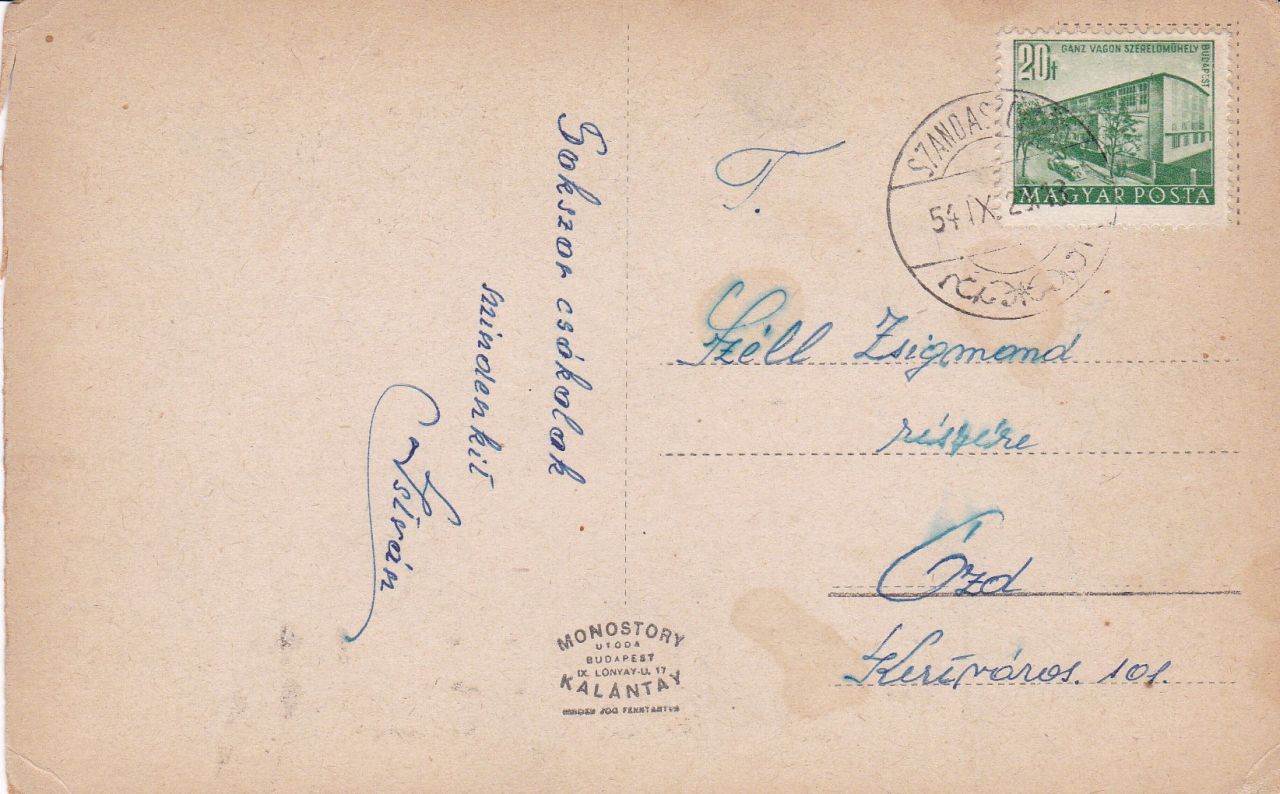 Sokszor csókolok
mindenkit
István
MONOSTORY
UTÓDA
BUDAPEST
IX. LÓNYAY-U. 17
KALÁNTAY
MINDEN JOG FENNTARTVA
20f
GANZ VAGON SZERELŐMŰHELY
BUDAPEST
MAGYAR POSTA
54 IX.
T.
Széll Zsigmond
részére
Ózd
Kertváros. 101.